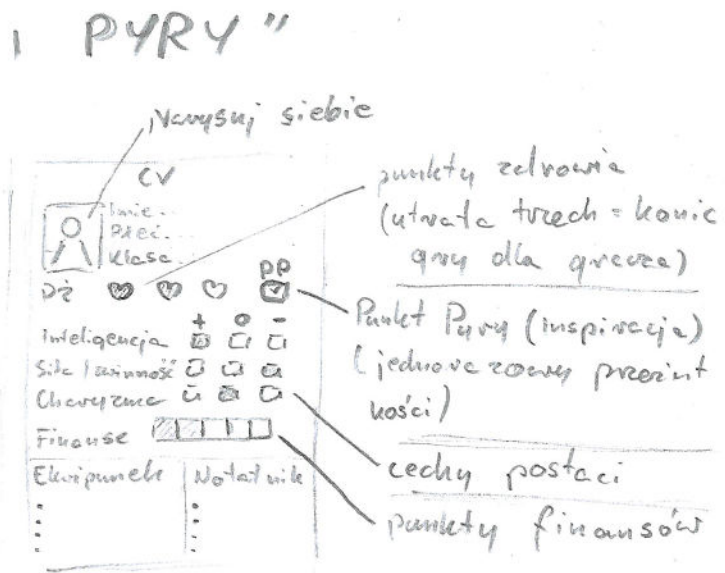 „PYRY”
Narysuj siebie
CV
Imie...
Płeć...
Klasa...
PŻ
PP
+ o -
Inteligencja
Siła/zwinność
Charyzma
Finanse
Ekwipunek
Notatnik
punkty zdrowia
(utrata trzech = koniec
gry dla gracza)
Punkt Pyry (inspiracja)
(jednorazowy przerzut
kości)
cechy postaci
punkty finansów